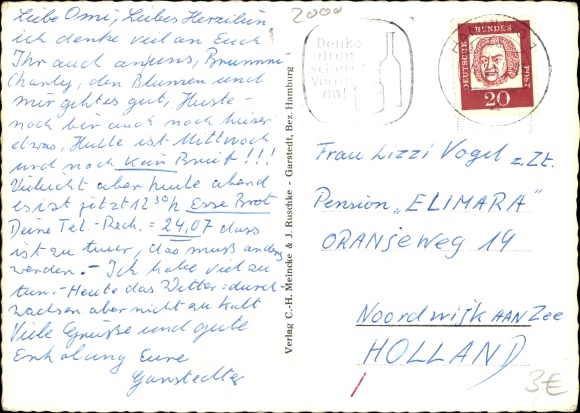 Liebe Omi, Liebes Herzilein
ich denke viel an Euch
Ihr auch an uns, Brummi-
Charly, den Blumen und
mir geht es gut, Huste-
noch bin auch noch heiser
etwas, Heute ist Mittwoch
und noch kein Brief!!!
Vielleicht aber heute abend
es ist jetzt 12 30 h Esse Brot
Deine Tel.-Rech. = 24,07 das
ist zu teuer, das muß anders
werden.- Ich habe viel zu
tun.- Heute das Wetter = durch-
wachsen aber nicht zu kalt
Viele Grüße und gute
Erholung Eure
Garstedter
Verlag C.-H. Meincke & J. Ruschke - Garstedt, Bez. Hamburg
2000
Denke
dran
kein
DEUTSCHE
BUNDES
POST
20
Frau Lizzi Vogel z.Zt.
Pension „ELIMARA"
ORANJEWEG 14
Noordwijk AAN Zee
HOLLAND
3€